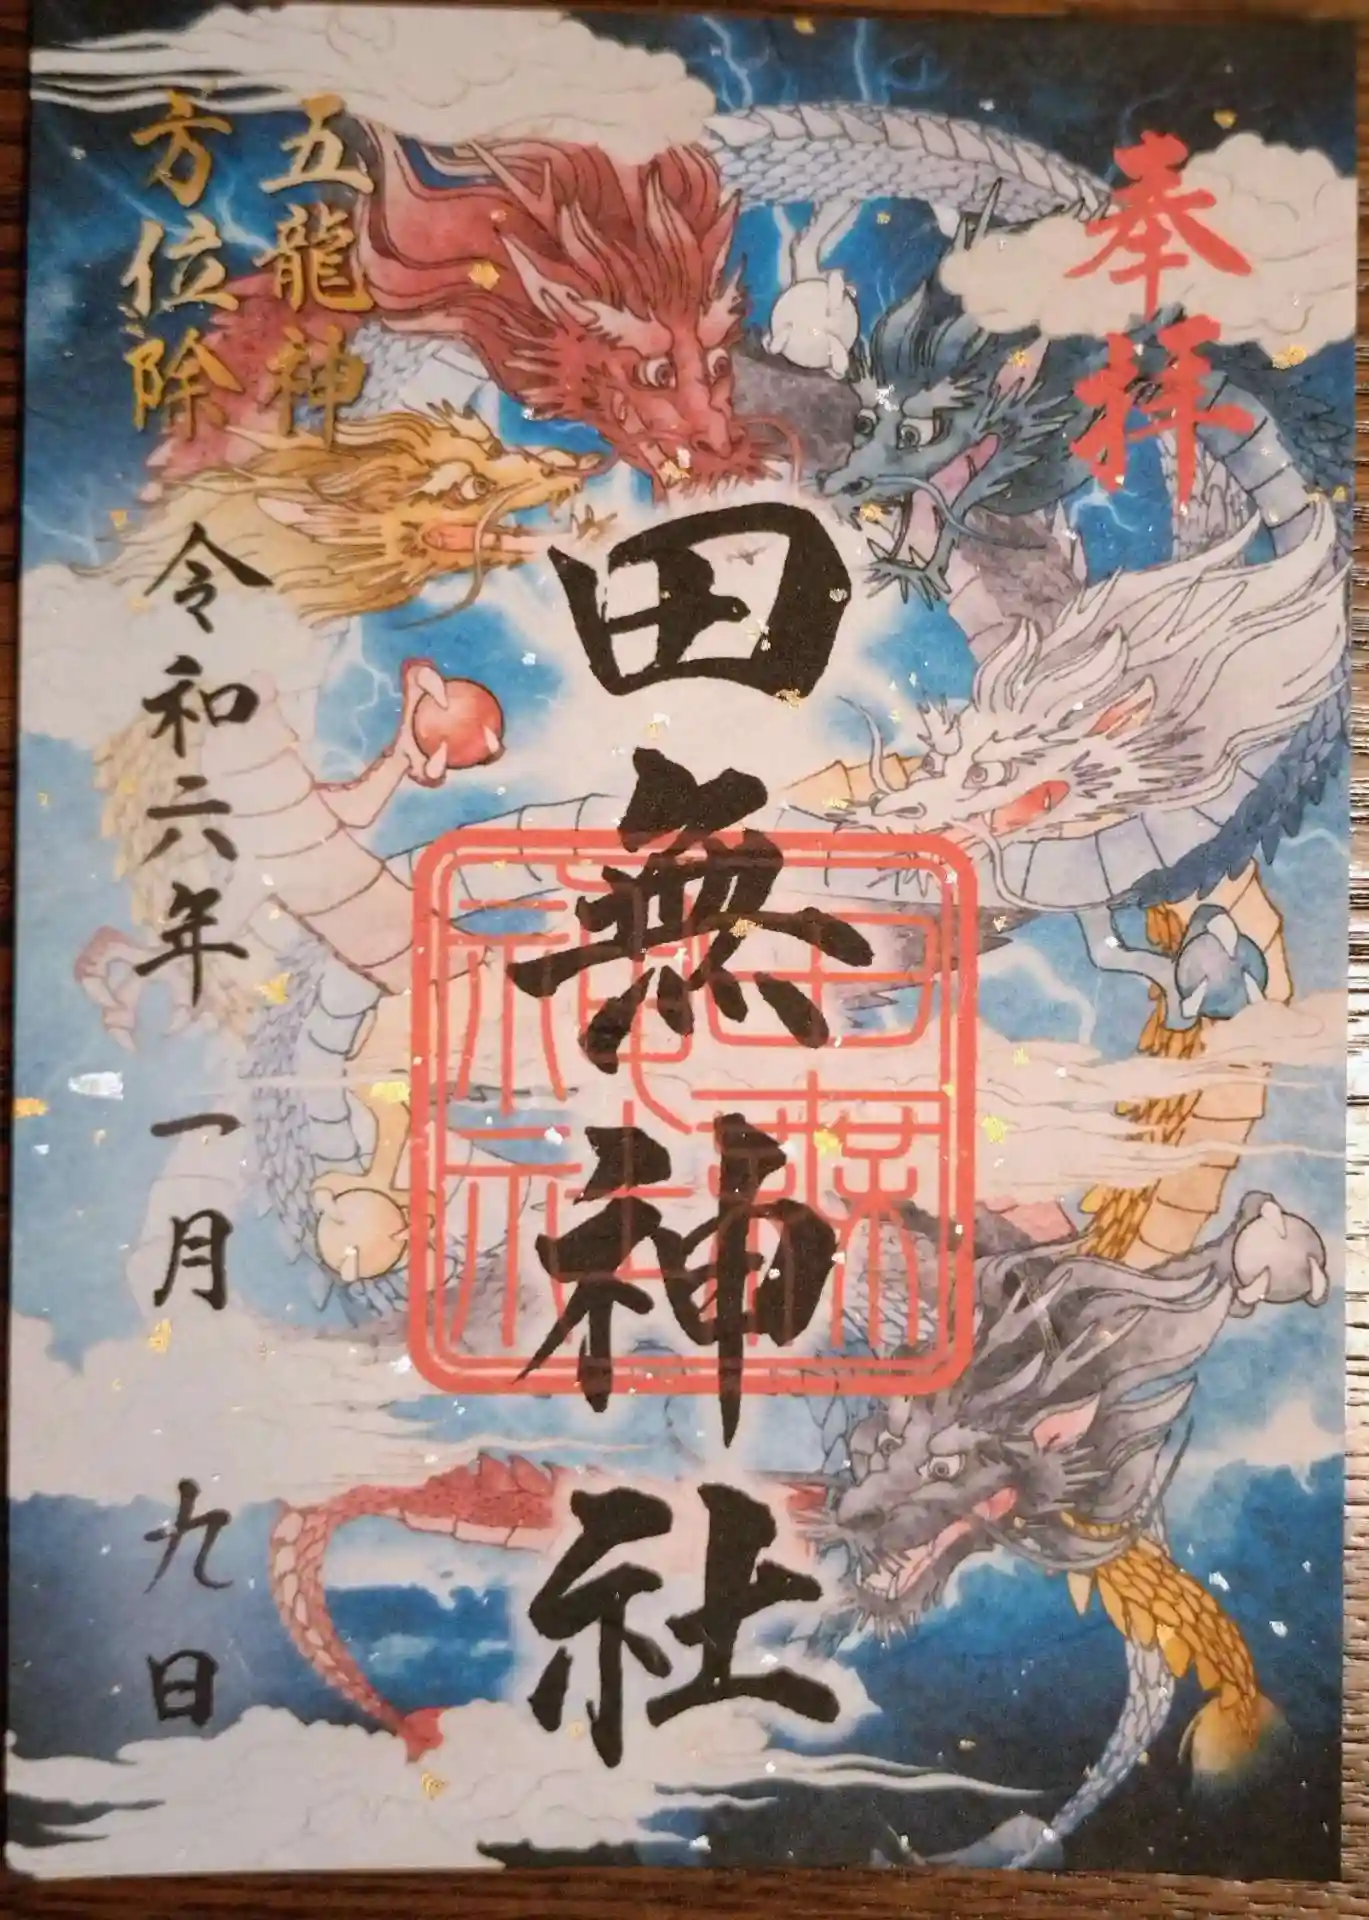 奉拝
田無神社
田無神社
五龍神
方位除
令和六年一月九日